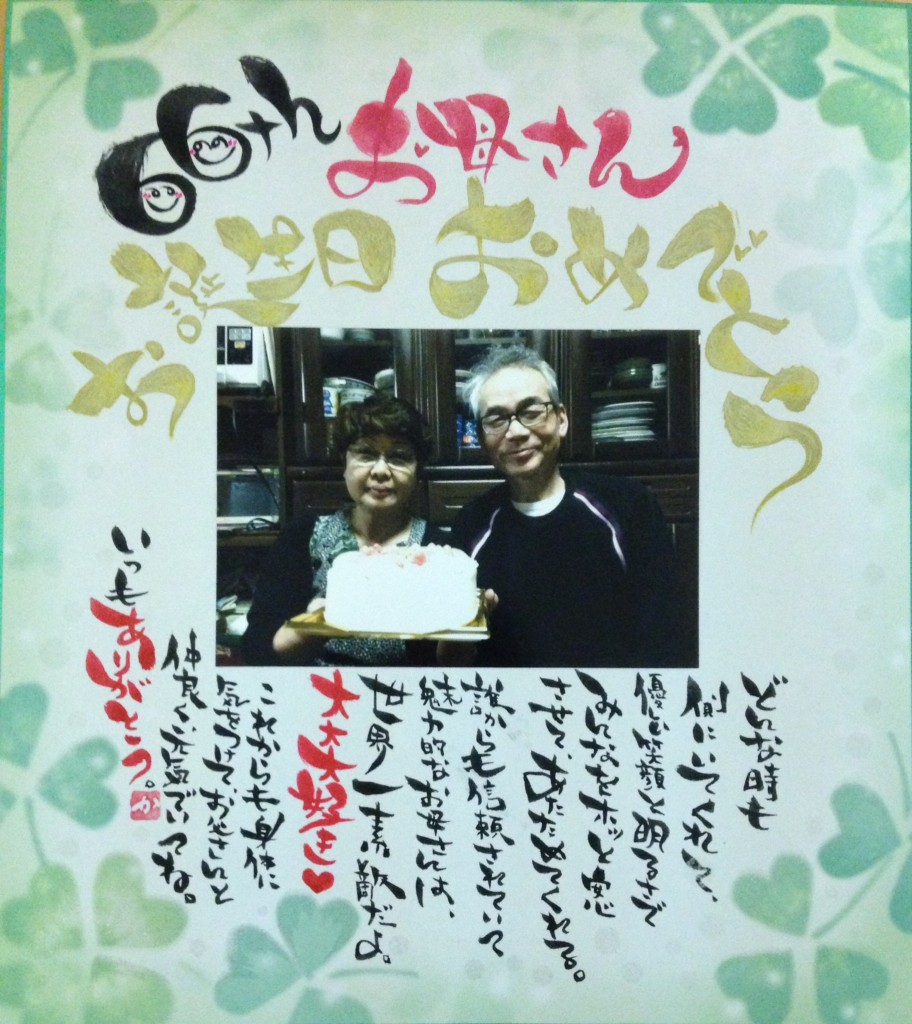 66さん お母さん
お誕生日 おめでとう
どんな時も
側にいてくれて、
優しい笑顔と明るさで
みんなをホッと安心
させて、あたためてくれてる。
誰からも信頼されていて
魅力的なお母さんは、
世界一素敵だよ。
大大大好き♥
これからも身体に
気をつけて、お父さんと
仲良く元気でいてね。
いつもありがとう。
か